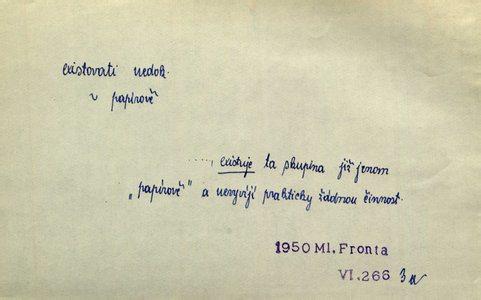 existovati nedok.
v papírově
...., existuje ta skupina již jenom
„papírově" a nevyvíjí prakticky žádnou činnost.
1950 Ml. Fronta
VI. 266 3a